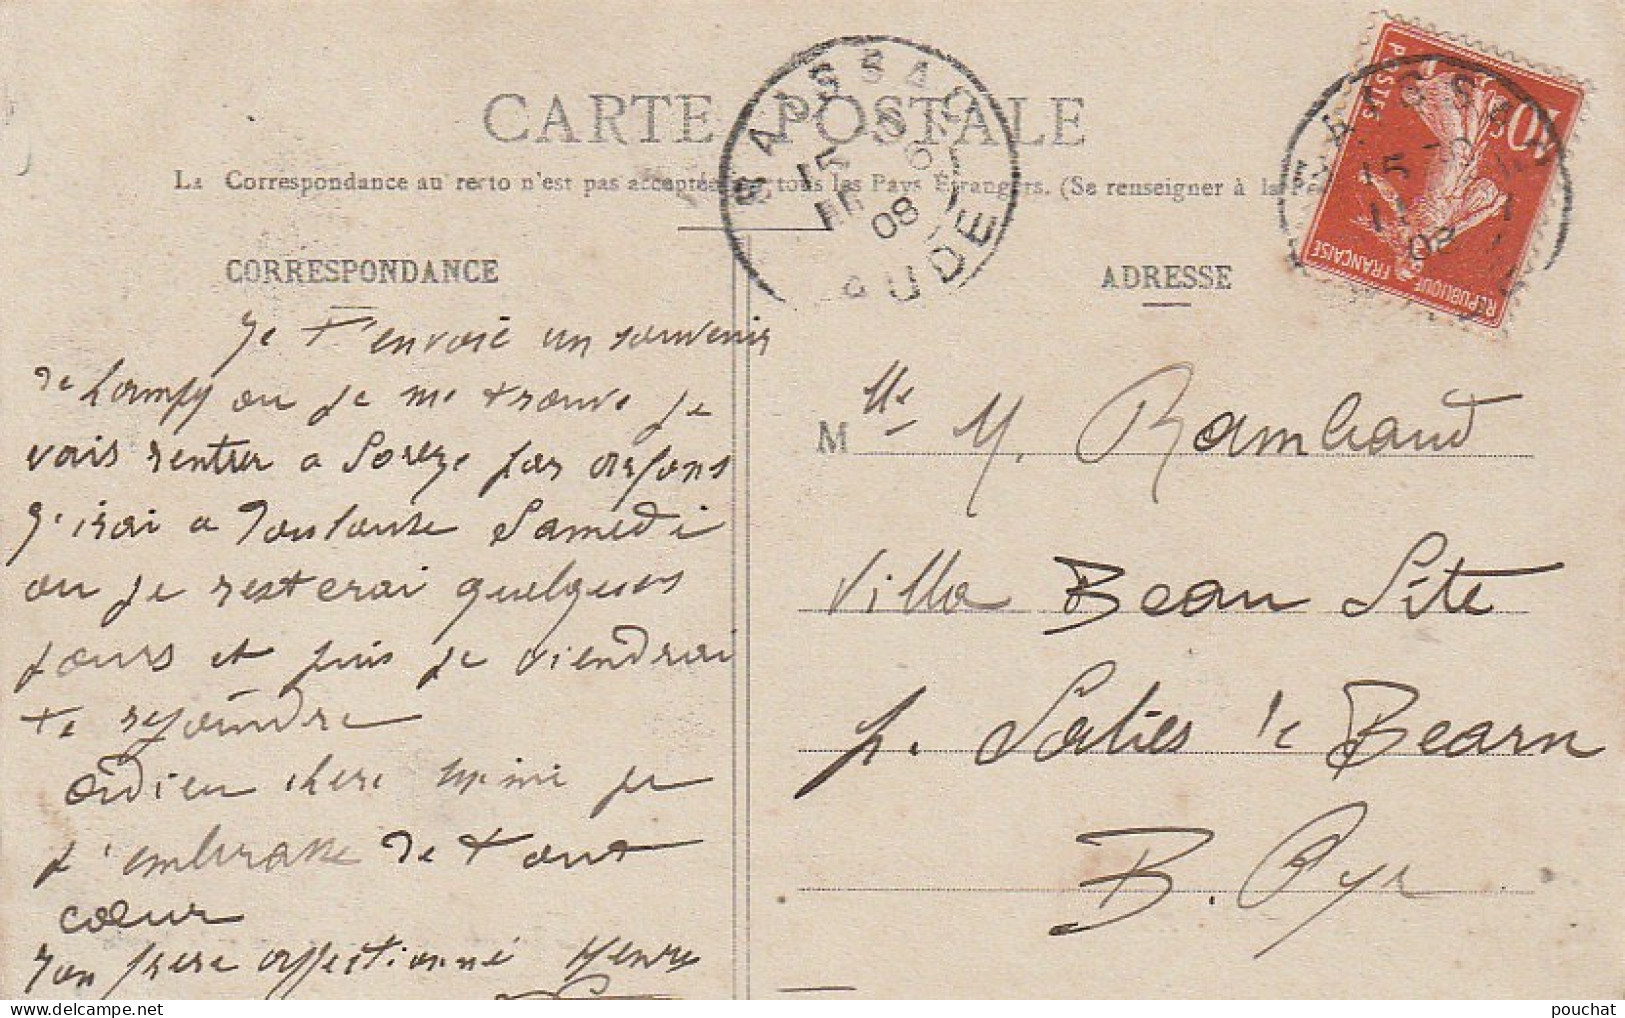 CARTE POSTALE
La Correspondance au recto n'est pas acceptée par tous les Pays Étrangers. (Se renseigner à la Poste
SAISSAC
15 6
08
AUDE
SAISSAC
15
08
10c
POSTES
REPUBLIQUE FRANÇAISE
CORRESPONDANCE
Je t'envoie un souvenir
de Lampy ou je me trouve je
vais rentrer a Soreze par Arfons
j'irai a Toulouse Samedi
ou je resterai quelques
jours et puis je viendrai
te rejoindre
adieu chere Mimi je
t'embrasse de tout
cœur
Ton frere affectionné Henry
ADRESSE
Mlle M. Rambaud
Villa Beau Site
p. Salies de Bearn
B. Pyr
pouchat